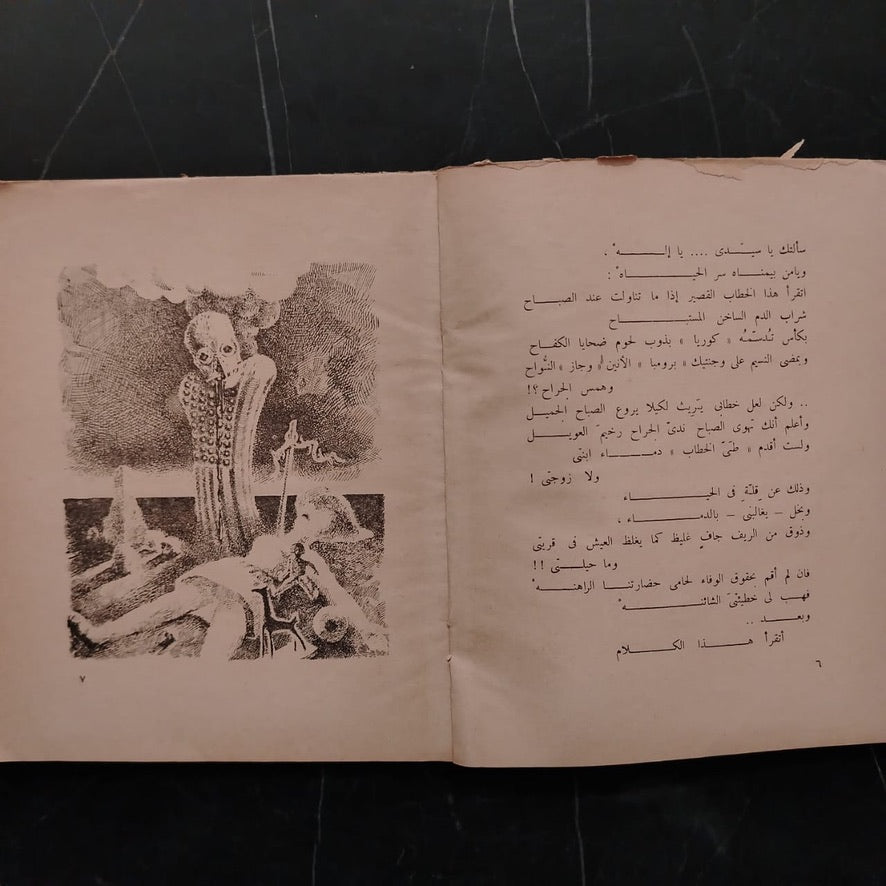 سألتك يا سيـــدى .... يا إلـــــهْ ،
ويامن بيمنـــاه سر الحيـــــاهْ :
اتقرأ هذا الخطاب القصير إذا ما تناولت عند الصبـــاح
شراب الدم الساخن المستبـــــــاح
بكأس تُدسّمُهُ « كوريا » بذوب لحوم ضحايا الكفاح
ويمضى النسيم على وجنتيك « برومبا » الأنين « وجاز » النُّواح
وهمس الجراح ؟!
.. ولكن لعل خطابى يتريث لكيلا يروع الصباح الجميـــل
وأعلم أنك تهوى الصباح ندىّ الجراح رخيمَ العويـــــل
ولست أقدم « طىّ الخطاب » دمـــــاء ابنتى
ولا زوجتى !
وذلك عن قِلّةٍ فى الحيـــــــاء
وبخل – يغالبنى – بالدمـــــــاء ،
وذوق من الريف جافٍ غليظ كما يغلظ العيش فى قريتى
وما حيلـــتى !!
فان لم أقم بحقوق الوفاء لحامى حضارتنـــا الراهنـــهْ
فهب لى خطيئتىَ الشائنـــــــهْ
وبعـــد ..
أتقرأ هـــــذا الكـــلام
٦
٧